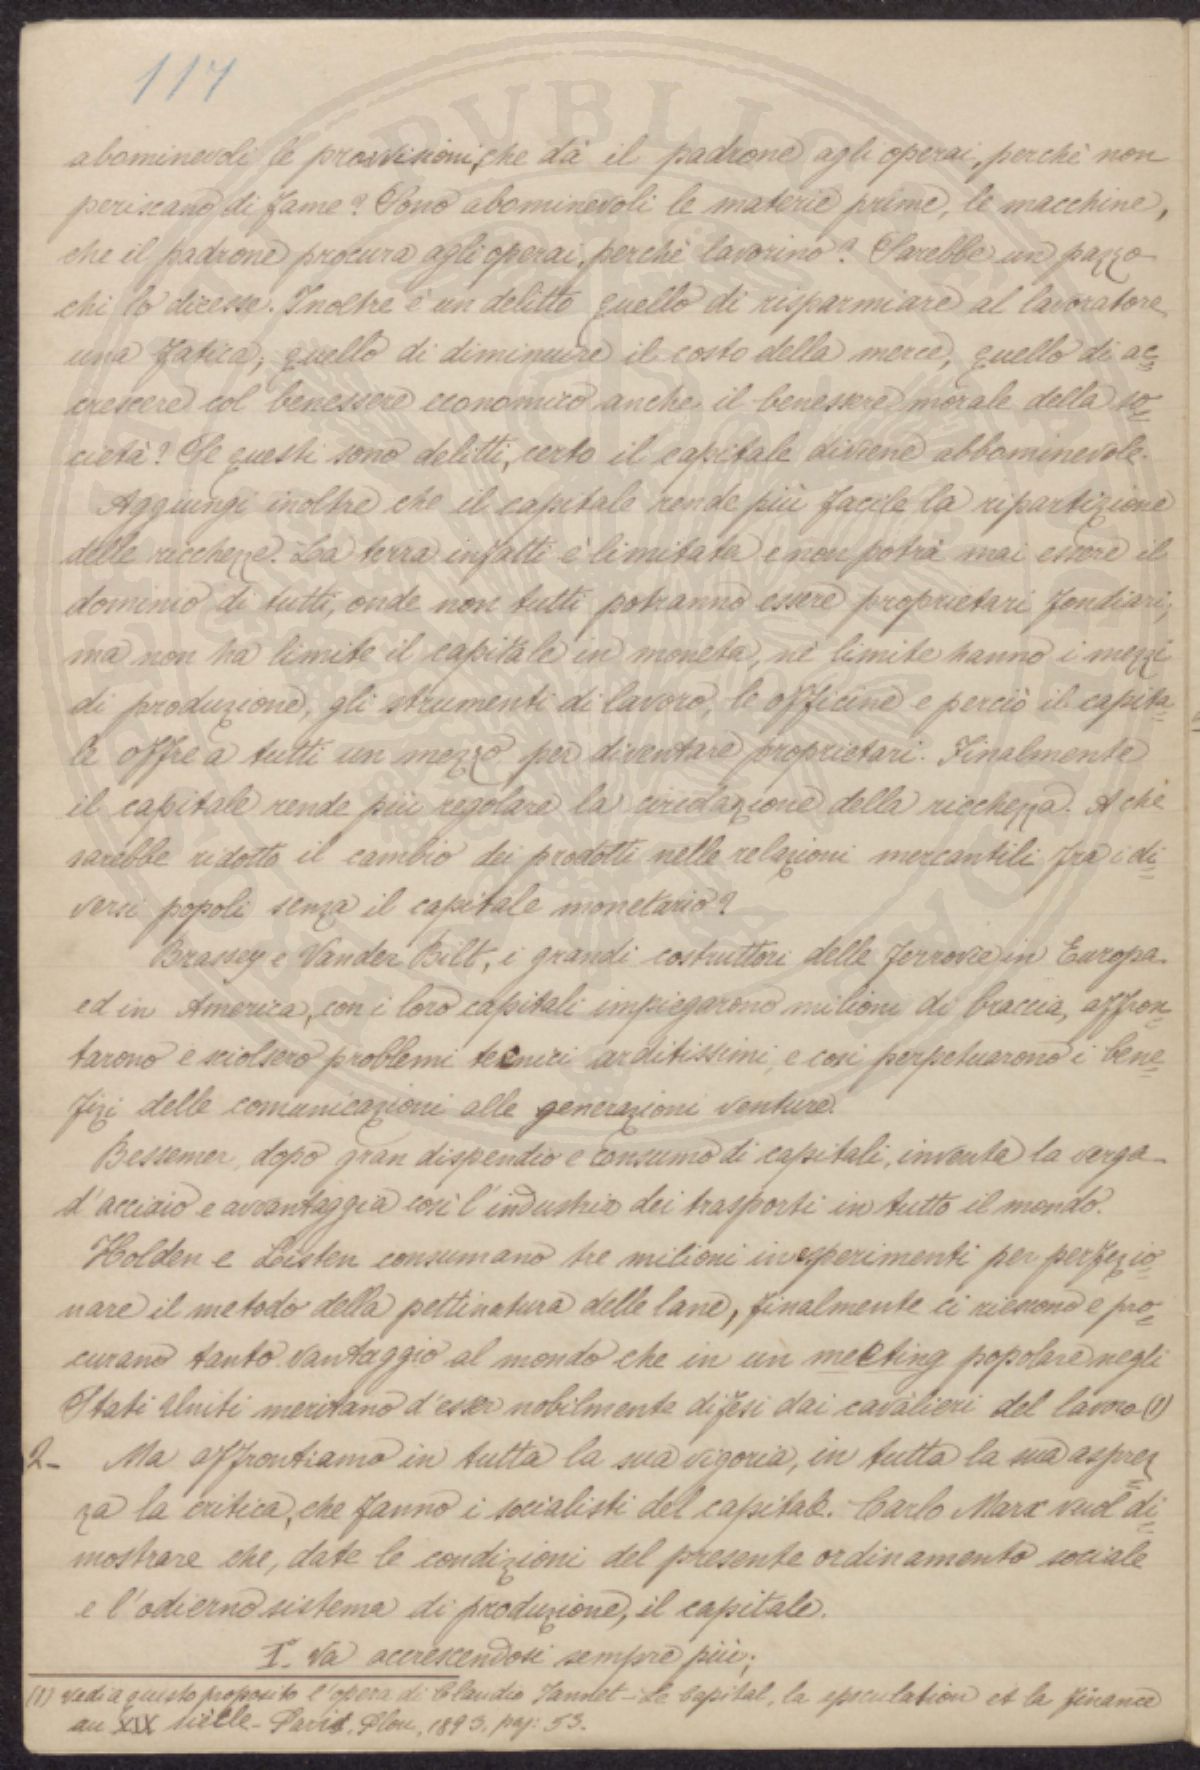 117
abominevoli le provvisioni, che dà il padrone agli operai, perchè non
periscano di fame? Sono abominevoli le materie prime, le macchine,
che il padrone procura agli operai, perchè lavorino? Sarebbe un pazzo
chi lo dicesse. Inoltre è un delitto quello di risparmiare al lavoratore
una fatica, quello di diminuire il costo della merce, quello di ac=
crescere col benessere economico anche il benessere morale della so=
cietà? Se questi sono delitti, certo il capitale diviene abbominevole.
Aggiungi inoltre che il capitale rende più facile la ripartizione
delle ricchezze. La terra infatti è limitata e non potrà mai essere il
dominio di tutti, onde non tutti potranno essere proprietari fondiari,
ma non ha limite il capitale in moneta, nè limite hanno i mezzi
di produzione, gli strumenti di lavoro, le officine e perciò il capita=
le offre a tutti un mezzo per diventare proprietari. Finalmente
il capitale rende più regolare la circolazione della ricchezza. A che
sarebbe ridotto il cambio dei prodotti nelle relazioni mercantili fra i di=
versi popoli senza il capitale monetario?
Brassey e Vander Bilt, i grandi costruttori delle ferrovie in Europa
ed in America, con i loro capitali impiegarono milioni di braccia, affron=
tarono e sciolsero problemi tecnici arditissimi, e così perpetuarono i bene=
fizi delle comunicazioni alle generazioni venture.
Bessemer, dopo gran dispendio e consumo di capitali, inventa la verga
d'acciaio e avvantaggia così l'industria dei trasporti in tutto il mondo.
Holden e Listen consumano tre milioni in esperimenti per perfezio=
nare il metodo della pettinatura delle lane, finalmente ci riescono e pro=
curano tanto vantaggio al mondo che in un meeting popolare negli
Stati Uniti meritano d'esser nobilmente difesi dai cavalieri del lavoro (1)
2- Ma affrontiamo in tutta la sua vigoria, in tutta la sua asprez=
za la critica, che fanno i socialisti del capitale. Carlo Marx vuol di=
mostrare che, date le condizioni del presente ordinamento sociale
e l'odierno sistema di produzione, il capitale.
I.° Va accrescendosi sempre più;
(1) Vedi a questo proposito l'opera di Claudio Jannet - Le Capital, la spéculation et la finance
au XIX siècle - Paris, Plon, 1893, pag: 53.